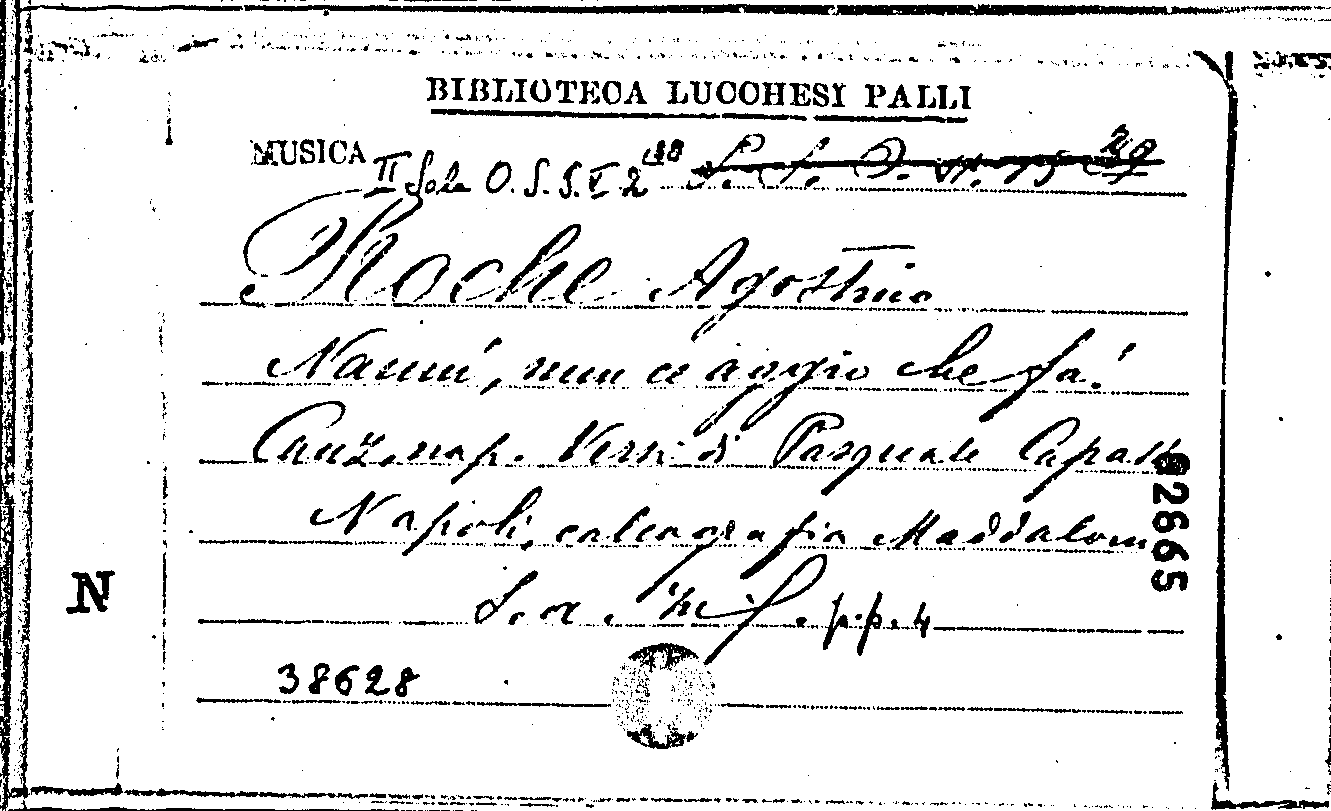 BIBLIOTECA LUCCHESI PALLI
MUSICA II Sala O. S. S. V 2
Roche Agostino
Nanní, nun ce aggio che fá!
Canz. nap. Versi di Pasquale Capasso
Napoli, calcografia Maddaloni
S. a. in f. p.p. 4
38628
N
62665